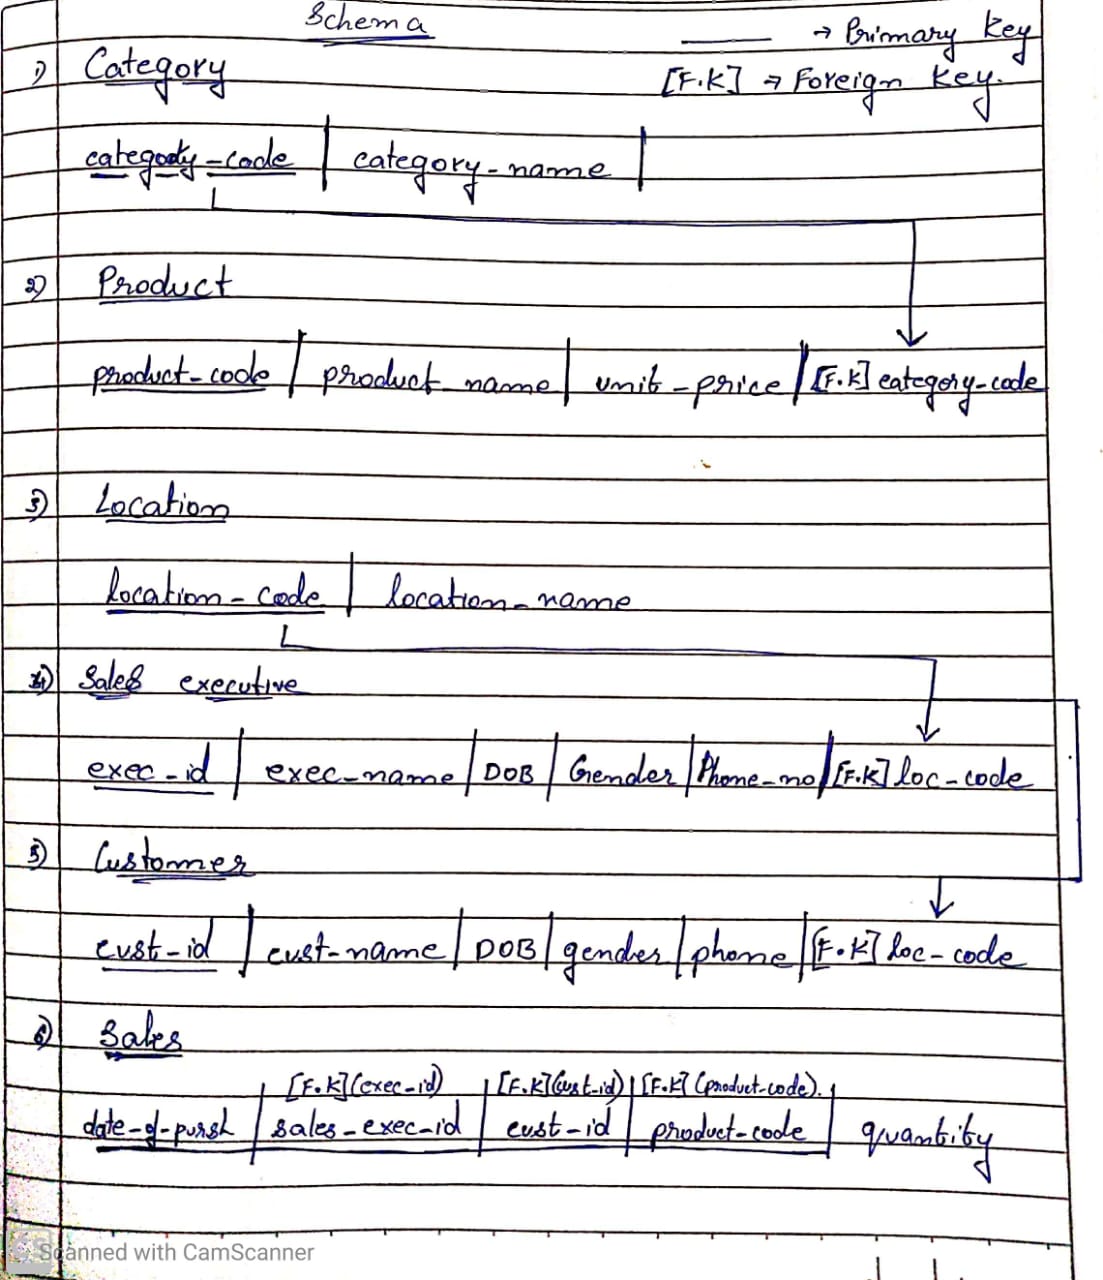 Schema
→ Primary Key
1) Category
[F.K] → Foreign Key.
category-code | category-name |
2) Product
product-code | product-name | unit-price | [F.K] category-code
3) Location
location-code | location-name
4) Sales executive
exec-id | exec-name | DOB | Gender | Phone-no | [F.K] loc-code
5) Customer
cust-id | cust-name | DOB | gender | phone | [F.K] loc-code
6) Sales
[F.K] (exec-id) | [F.K] (cust-id) | [F.K] (product-code).
date-of-pursh | sales-exec-id | cust-id | product-code | quantity
Scanned with CamScanner